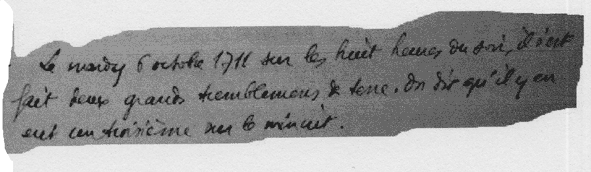 Le mardy 6 octobre 1711 sur les huit heures du soir, il s'est
fait deux grands tremblemens de terre. On dit qu'il y en
eut un troisième sur le minuit.